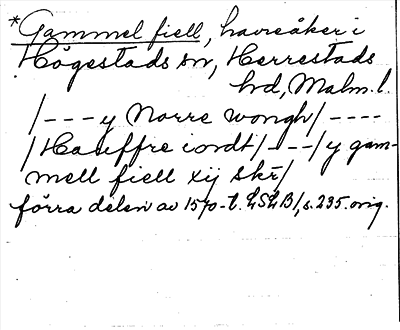 *Gammel fiell, havreåker i
Högestads sn, Herrestads
hd, Malm. l.
/--- y Norre wongh/ ----
/Hauffre iordt/ ---/ y gam-
mell fiell xij skr/
förra delen av 1570-t. LSLB/, s. 235. orig.